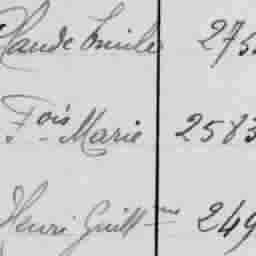 Claude Emile 275
Fois Marie 2583
Henri Guillme 249